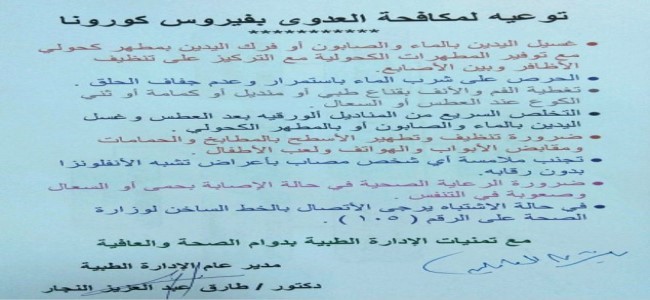 توعيه لمكافحة العدوى بفيروس كورونا
***********
• غسيل اليدين بالماء والصابون أو فرك اليدين بمطهر كحولي
مع توفير المطهرات الكحولية مع التركيز على تنظيف
الأظافر وبين الأصابع.
• الحرص على شرب الماء باستمرار وعدم جفاف الحلق .
• تغطية الفم والأنف بقناع طبي أو منديل أو كمامة أو ثني
الكوع عند العطس أو السعال .
• التخلص السريع من المناديل الورقيه بعد العطس و غسل
اليدين بالماء والصابون أو بالمطهر الكحولي .
• ضرورة تنظيف وتطهير الأسطح بالمطابخ والحمامات
ومقابض الأبواب و الهواتف ولعب الأطفال
• تجنب ملامسة أي شخص مصاب بأعراض تشبه الأنفلونزا
بدون رقابه.
• ضرورة الرعاية الصحية في حالة الإصابة بحمى أو السعال
وصعوبة في التنفس .
• في حالة الاشتباه يرجى الأتصال بالخط الساخن لوزارة
الصحة على الرقم ( ١٠٥ ) .
مع تمنيات الإدارة الطبية بدوام الصحة والعافية
مدير عام الإدارة الطبية
دكتور / طارق عبد العزيز النجار